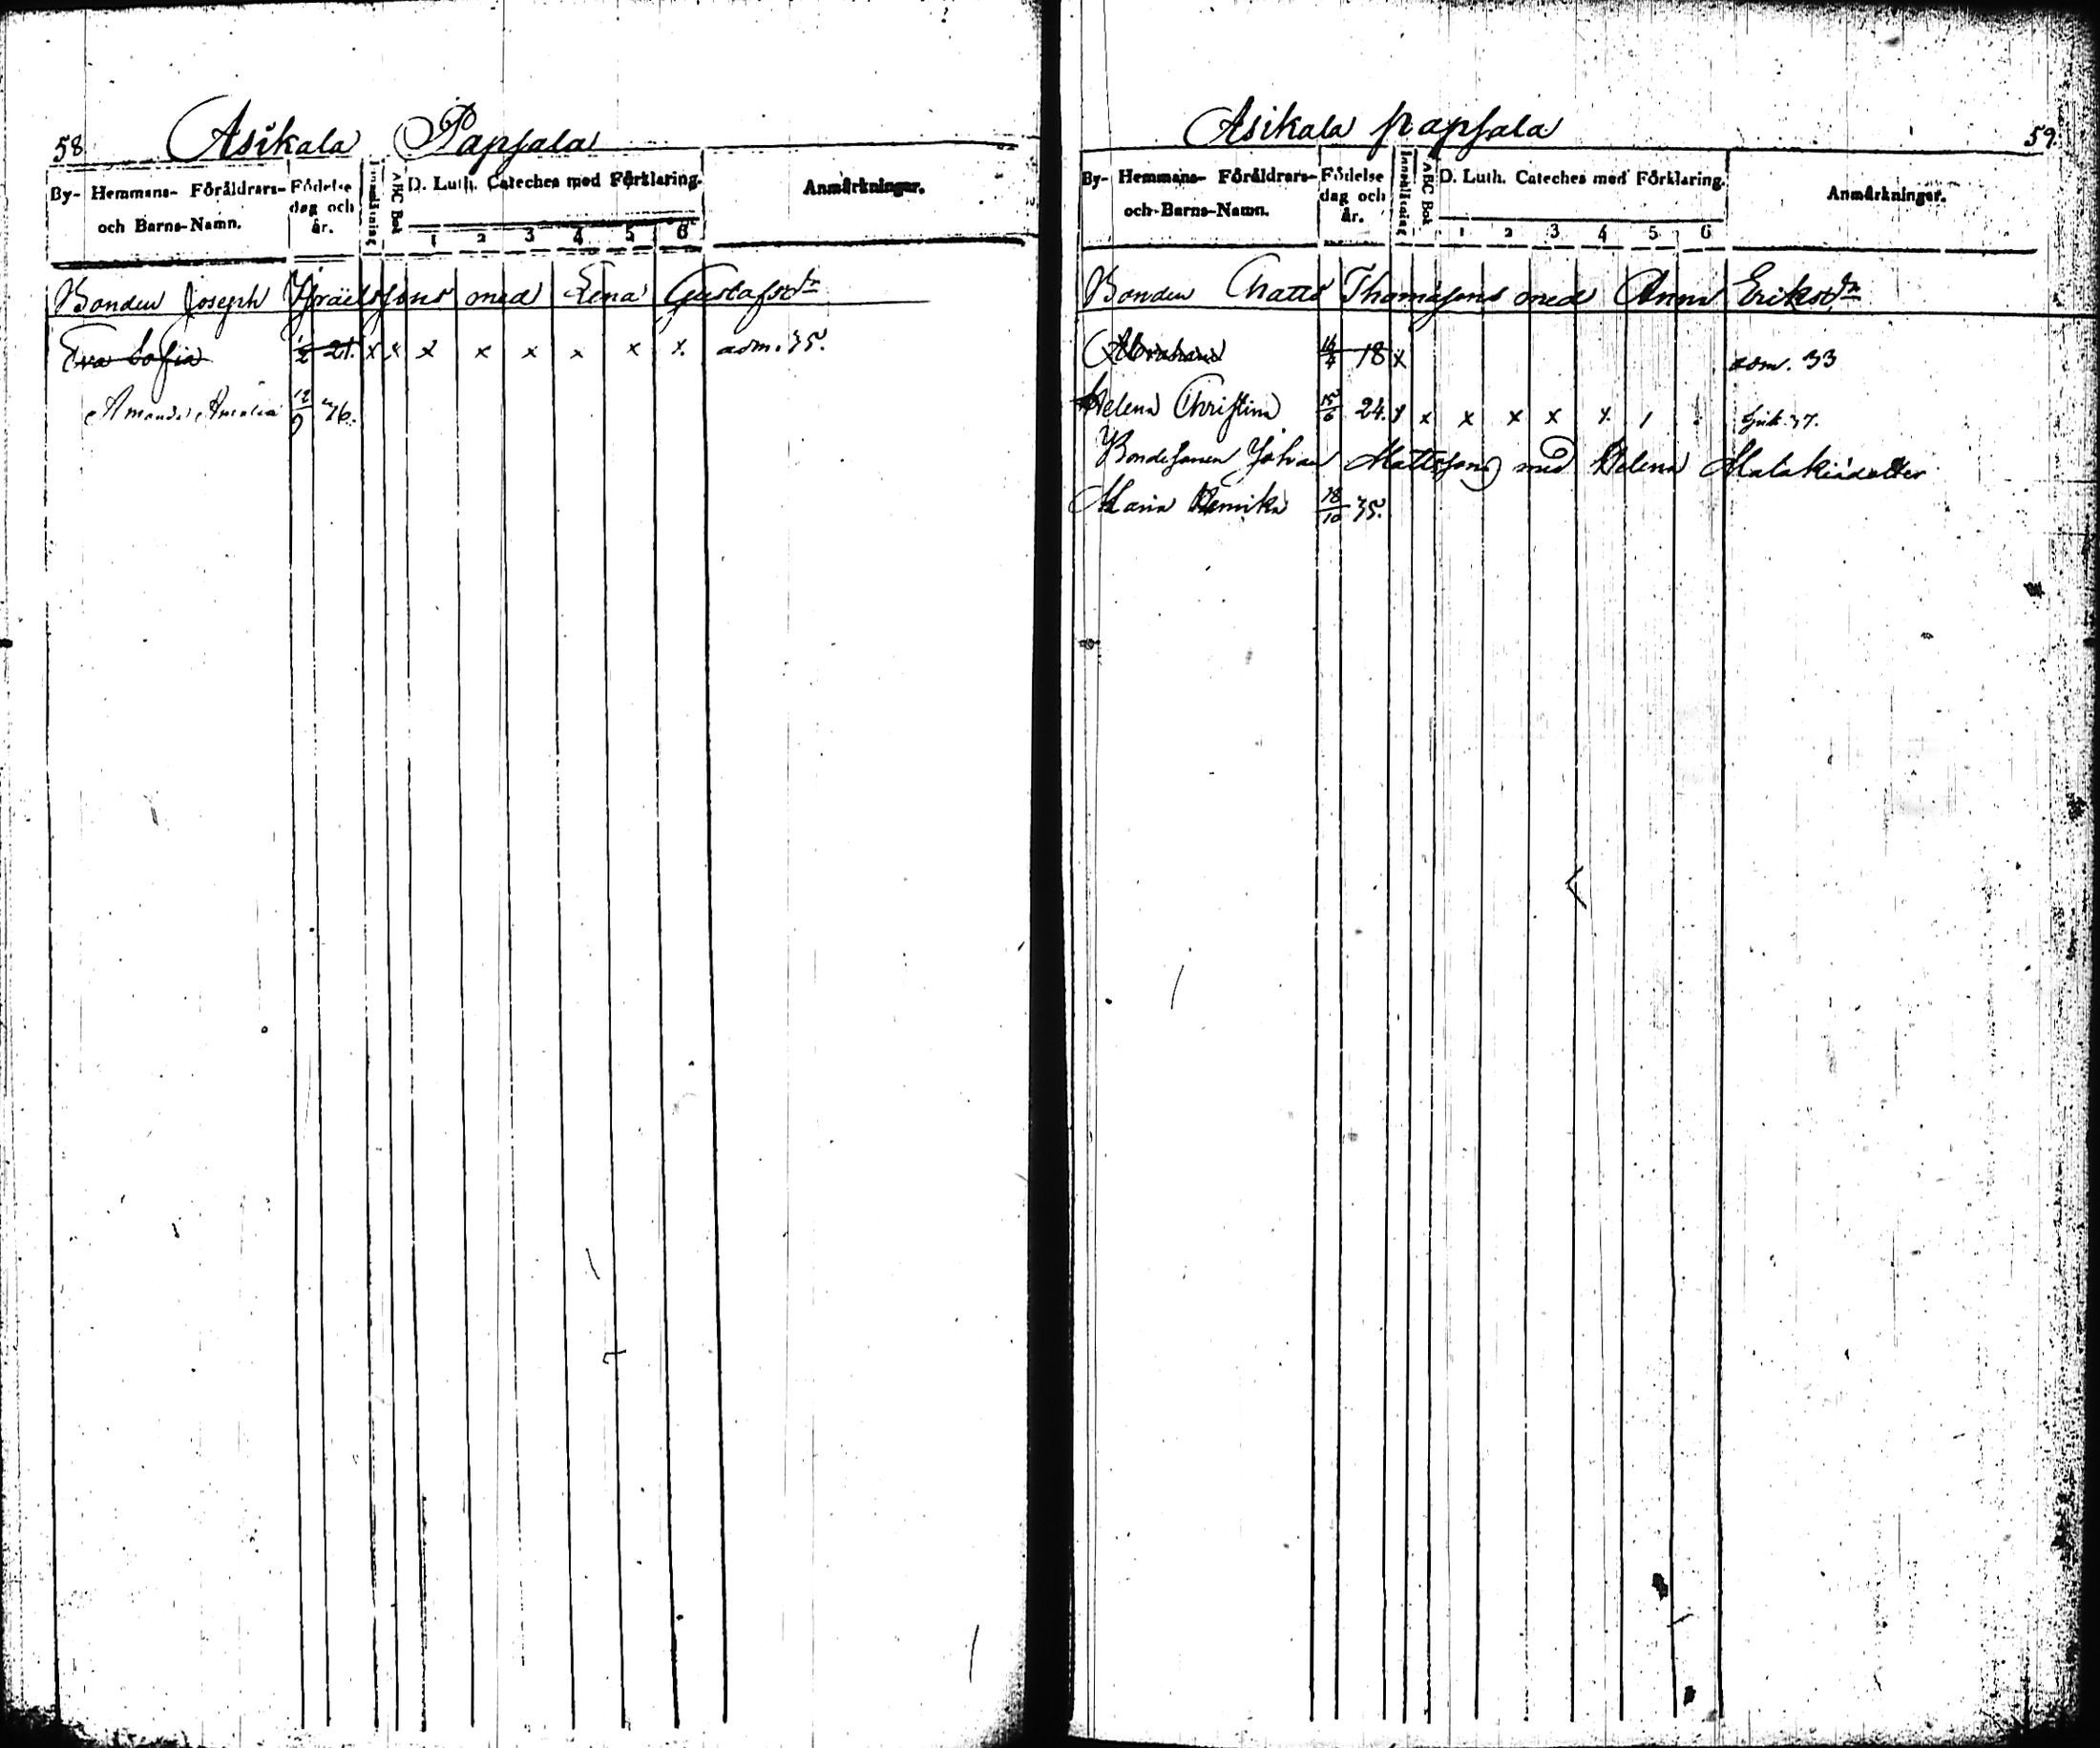 58 Asikala Papsala
By- Hemmans- Föräldrars- och Barns-Namn. Födelse dag och år. Innanläsning ABC Bok D. Luth. Cateches med Förklaring. Anmärkningar.
1 2 3 4 5 6
Bonden Joseph Israelssons med Lena Gustafsdr
Eva Sofia 1/2 21. x x x x x x x x. adm. 35.
Amanda Amalia 12/9 36.
Asikala papsala 59.
By- Hemmans- Föräldrars- och Barns-Namn. Födelse dag och år. Innanläsning ABC Bok D. Luth. Cateches med Förklaring. Anmärkningar.
1 2 3 4 5 6
Bonden Matts Thomassons med Anna Eriksdr
Abraham 18 x adm. 33
Helena Christina 15/6 24. x x x x x x 37.
Bondesonen Johan Mattssons med Helena Malakiadotter
Maria Henrika 18/10 35.